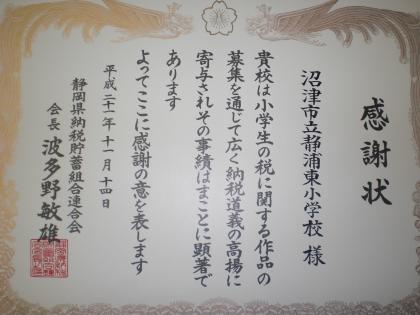 感謝状
沼津市立静浦東小学校 様
貴校は小学生の税に関する作品の
募集を通じて広く納税道義の高揚に
寄与されその事績はまことに顕著で
あります
よってここに感謝の意を表します
平成二十一年十一月十四日
静岡県納税貯蓄組合連合会
会長 波多野敏雄